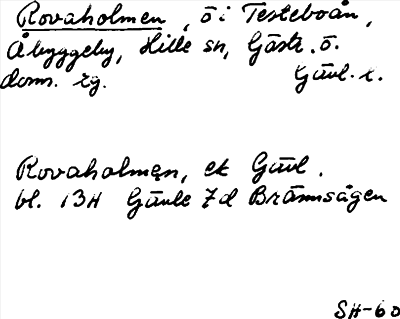 Rovaholmen, ö i Testeboån,
Åbyggeby, Hille sn, Gästr. ö.
dom. sg. Gävl. l.
Rovaholmen, ek Gävl.
bl. 13H Gävle 7d Brännsågen
SH-60